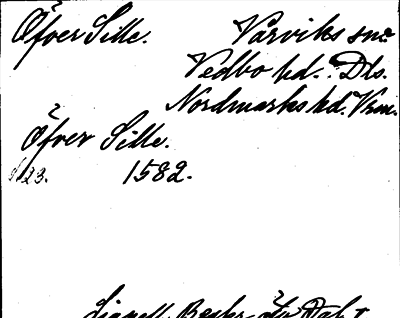 Öfver Sille. Vårviks sn.
Vedbo hd. Dls.
Nordmarks hd. Vrm.
Öfver Sille.
23. 1582.
Lignell, Beskr. öfv. Dal I